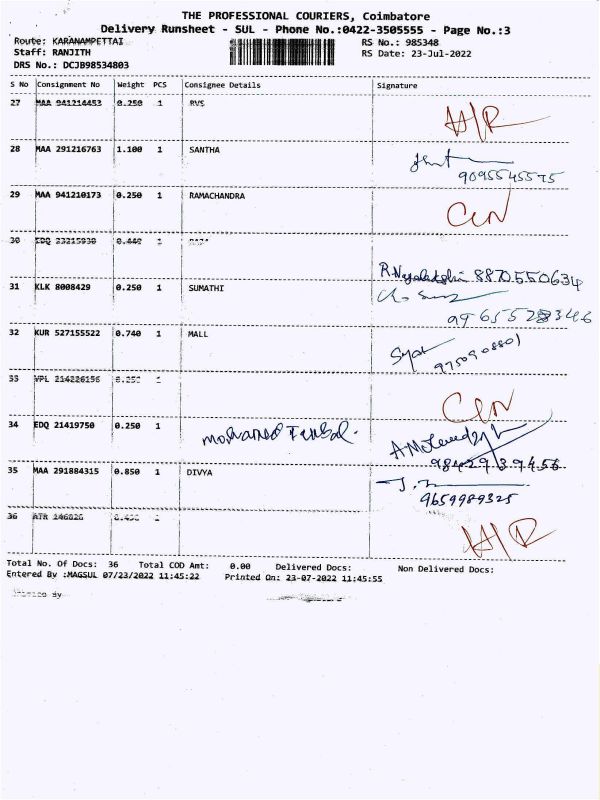 THE PROFESSIONAL COURIERS, Coimbatore
Delivery Runsheet - SUL - Phone No.:0422-3505555 - Page No.:3
Route: KARANAMPETTAI RS No.: 985348
Staff: RANJITH RS Date: 23-Jul-2022
DRS No.: DCJB98534803
S No Consignment No Weight PCS Consignee Details Signature
27 MAA 941214453 0.250 1 RVS
H/R
28 MAA 291216763 1.100 1 SANTHA
9095545575
29 MAA 941210173 0.250 1 RAMACHANDRA
30 EDQ 23215930 0.440 1 RAJA
8870550634
31 KLK 8008429 0.250 1 SUMATHI
9965528346
32 KUR 527155522 0.740 1 MALL
9750908801
33 VPL 214226156 0.250 1
34 EDQ 21419750 0.250 1 mohamed
9842939456
35 MAA 291884315 0.850 1 DIVYA
9659989325
36 ATR 146826 1
H/R
Total No. Of Docs: 36 Total COD Amt: 0.00 Delivered Docs: Non Delivered Docs:
Entered By :MAGSUL 07/23/2022 11:45:22 Printed On: 23-07-2022 11:45:55